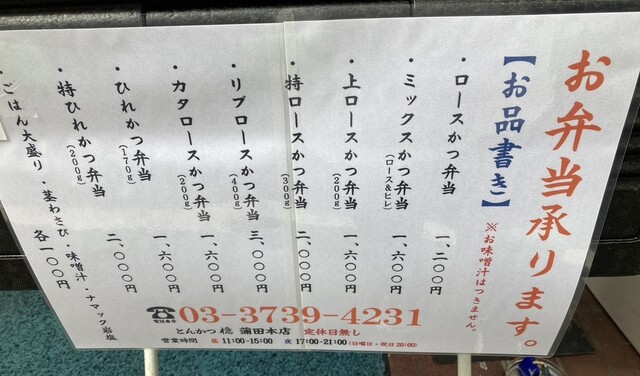 お弁当承ります。
【お品書き】
※お味噌汁はつきません。
・ロースかつ弁当 一、二〇〇円
・ミックスかつ弁当(ロース&ヒレ) 一、六〇〇円
・上ロースかつ弁当(200g) 一、六〇〇円
・特ロースかつ弁当(300g) 二、〇〇〇円
・リブロースかつ弁当(400g) 三、〇〇〇円
・カタロースかつ弁当(200g) 一、六〇〇円
・ひれかつ弁当(170g) 一、六〇〇円
・特ひれかつ弁当(200g) 二、〇〇〇円
・ごはん大盛り・茎わさび・味噌汁・ナマック岩塩 各一〇〇円
☎03-3739-4231
とんかつ 檍 蒲田本店 定休日無し
営業時間 昼 11:00-15:00 夜 17:00-21:00(日曜日・祝日20:00)